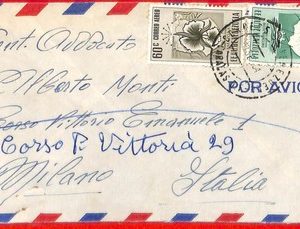 60c CORREO AEREO
Gent. Avvocato
Alberto Monti
POR AVIO
Corso Vittorio Emanuele 1
Corso P. Vittoria 29
Milano
Italia